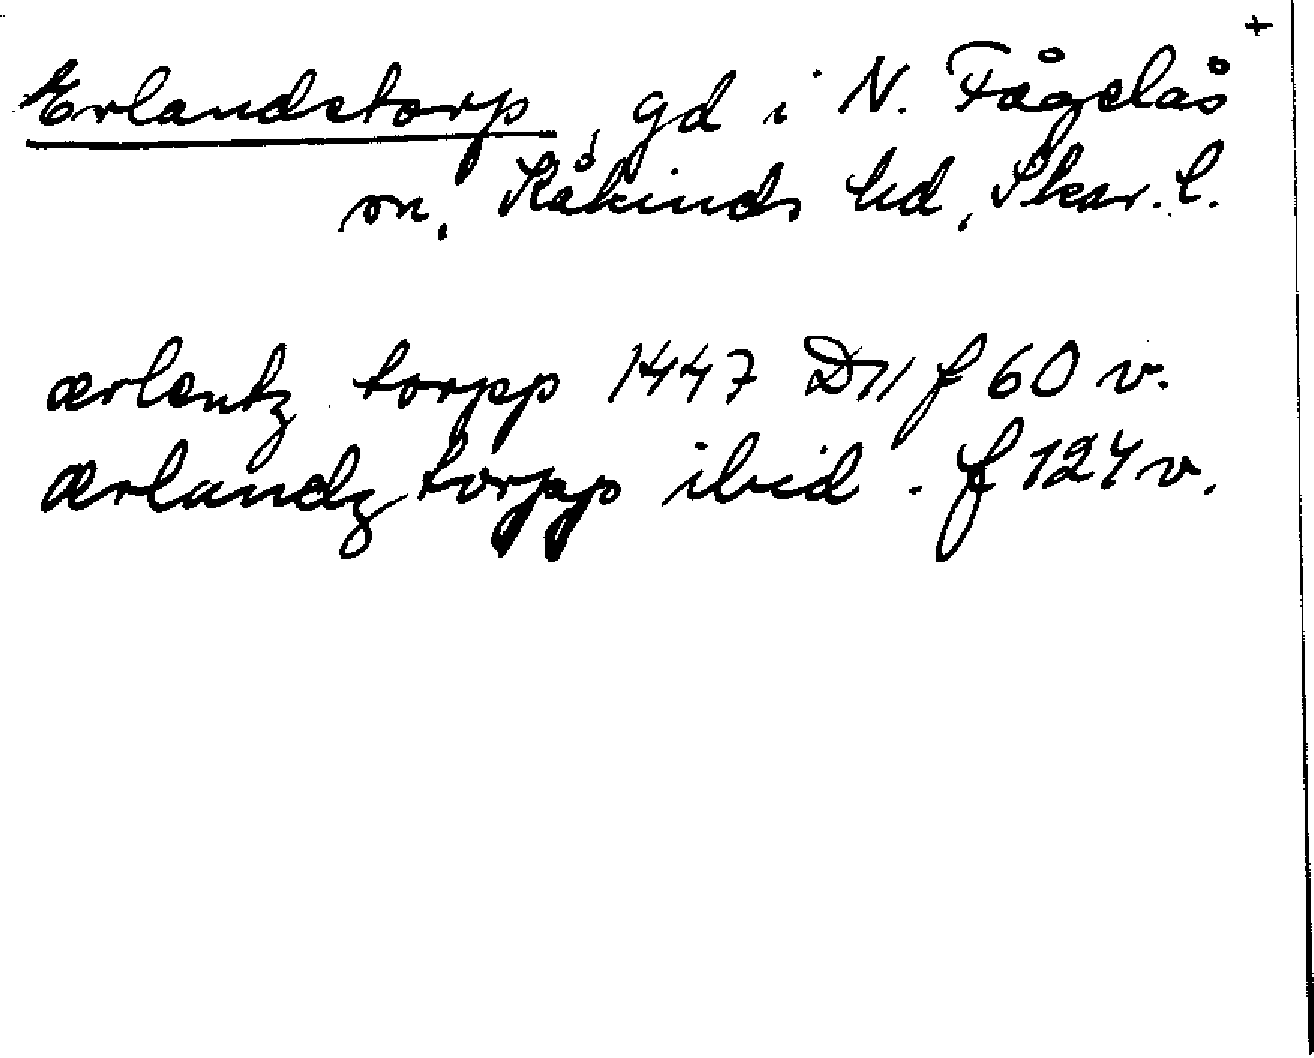 +
Erlandstorp, gd i N. Fågelås
sn, Kåkinds hd, Skar. l.
ærlentz torpp 1447 D11 f 60 v.
ærlandz torpp ibid. f 124 v.